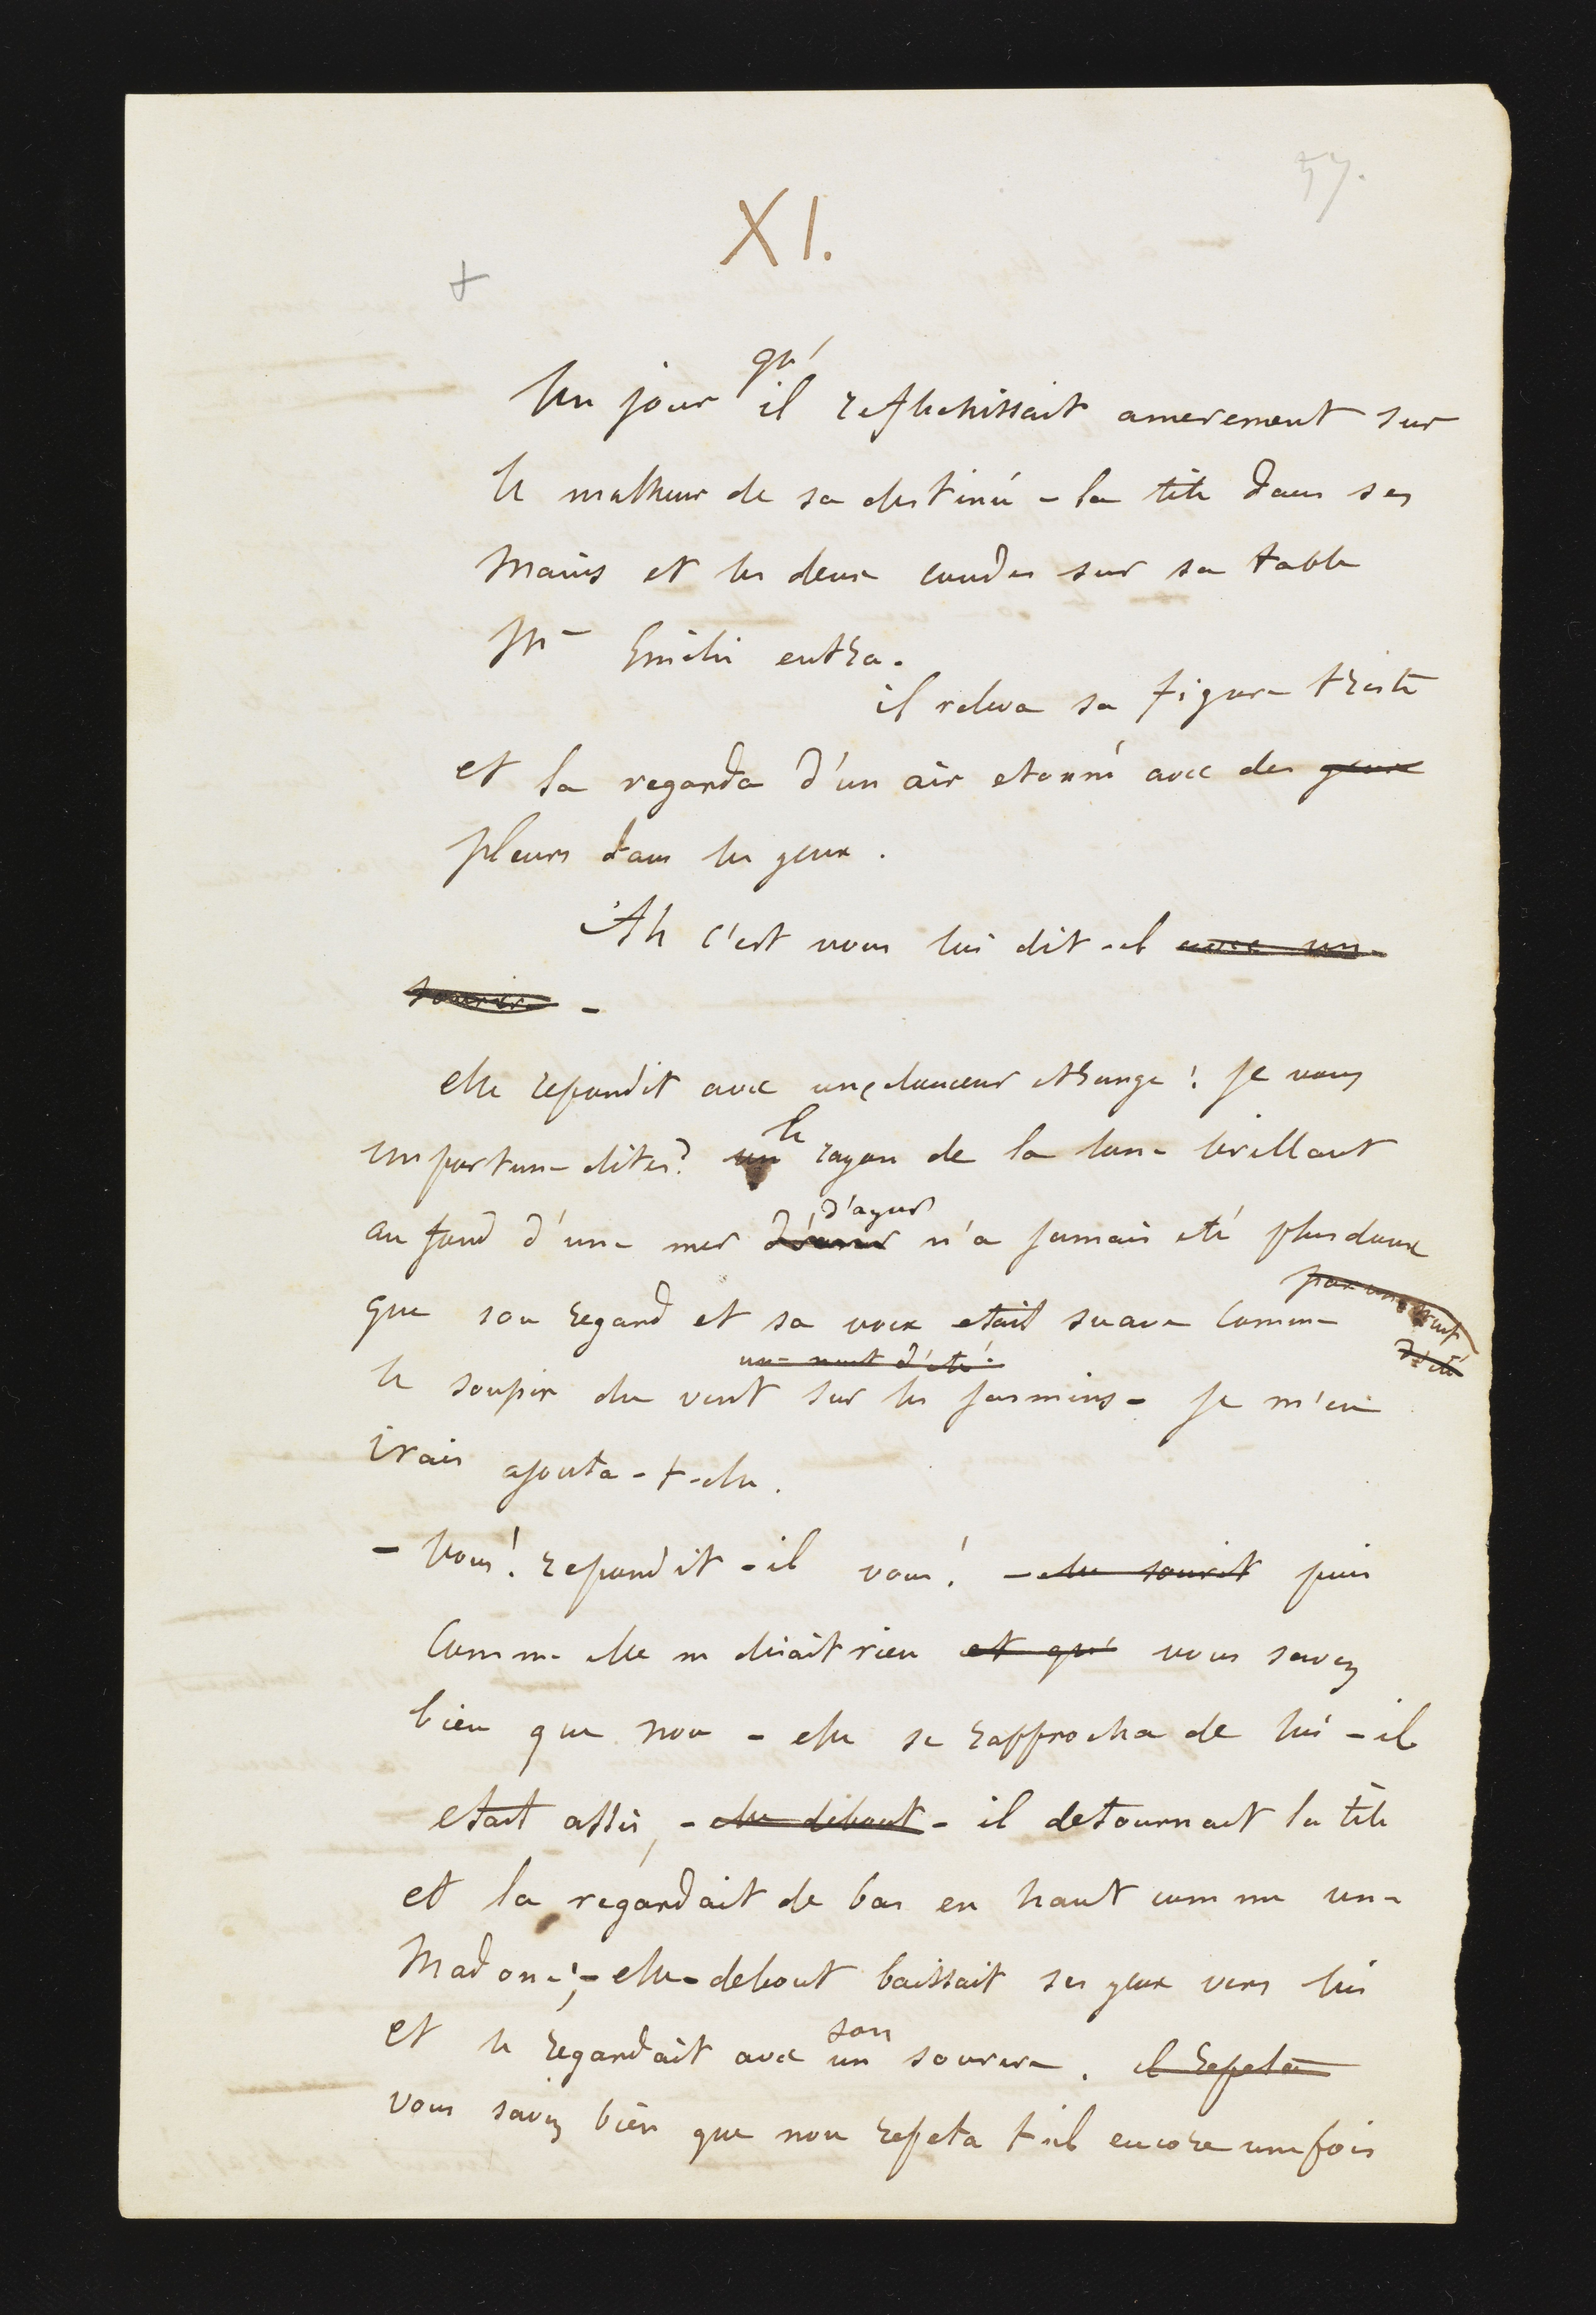 57.
XI.
+
qu'
Un jour il reflechissait amerement sur
le malheur de sa destinée - la tête dans ses
mains et les deux coudes sur sa table
Me Emilie entra.
il releva sa figure triste
et la regarda d'un air etonné avec des yeux
pleurs dans les yeux.
Ah c'est vous lui dit-il avec un
sourire -
elle repondit avec une douceur etrange : je vous
le
importune dites? un rayon de la lune brillant
d'azur
au fond d'une mer n'a jamais été plus doux
par une nuit
que son regard et sa voix etait suave comme
d'été
une nuit d'été
le soupir du vent sur les jasmins - je m'en
irais ajouta-t-elle.
- vous! repondit-il vous! - elle sourit puis
comme elle ne disait rien et qu' vous savez
bien que non - elle se rapprocha de lui - il
etait assis, - elle debout - il detournait la tête
et la regardait de bas en haut comme une
Madone, - elle debout baissait ses yeux vers lui
son
et le regardait avec un sourire. il repeta
vous savez bien que non repeta t-il encore une fois